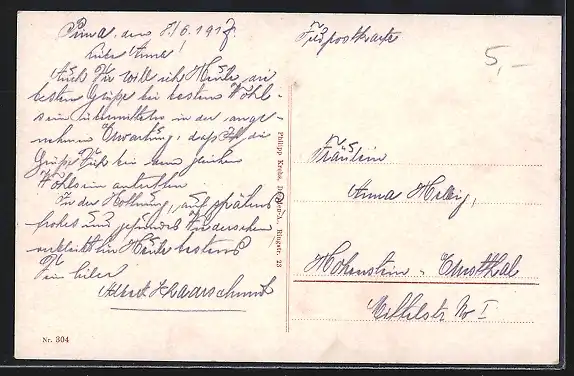 Pirna, den 8/6. 1917.
Liebe Anna!
Auch Dir will ich Heute die
besten Grüße bei bestem Wohl-
sein übermitteln in der ange-
nehmen Erwartung, daß die
Grüße Dich bei dem gleichen
Wohlsein antreffen
In der Hoffnung, auf späteres
frohes und gesundes Wiedersehen
Heute bestens
Dein lieber
Albert Haarschmidt
Nr. 304
Philipp Krebs, Ringstr. 23
Feldpostkarte
5,-
Fräulein
Anna Helbig,
Hohenstein-Ernstthal
Mittelstr. Nr I